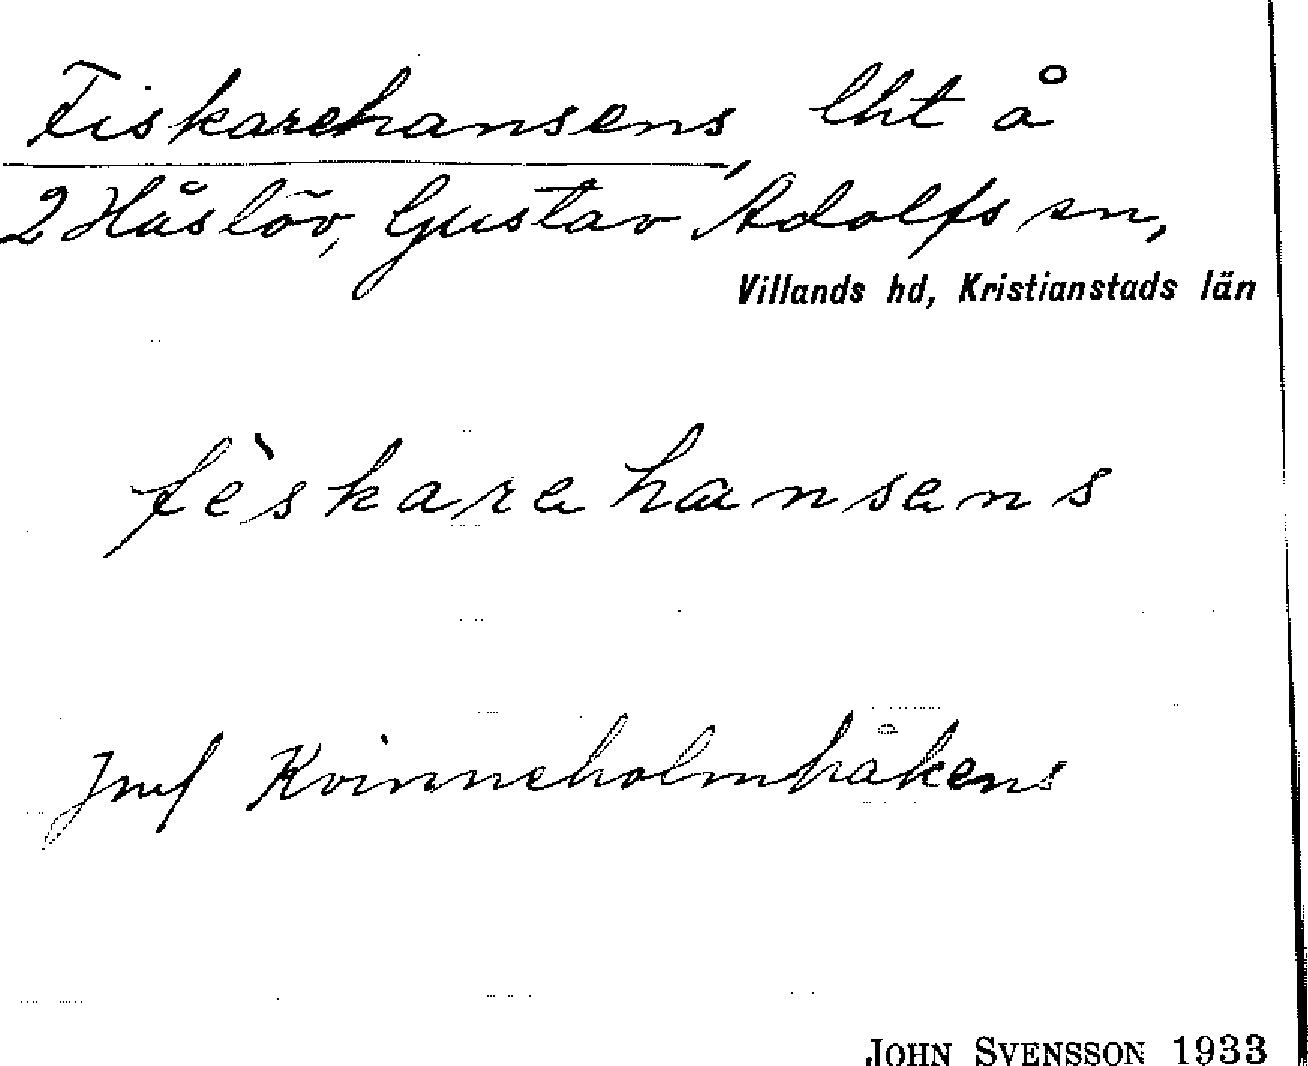 Fiskarehansens, lht å
2 Håslöv, Gustav Adolfs sn,
Villands hd, Kristianstads län
fèskarehansens
Jmf Kvinneholmhåkens
JOHN SVENSSON 1933